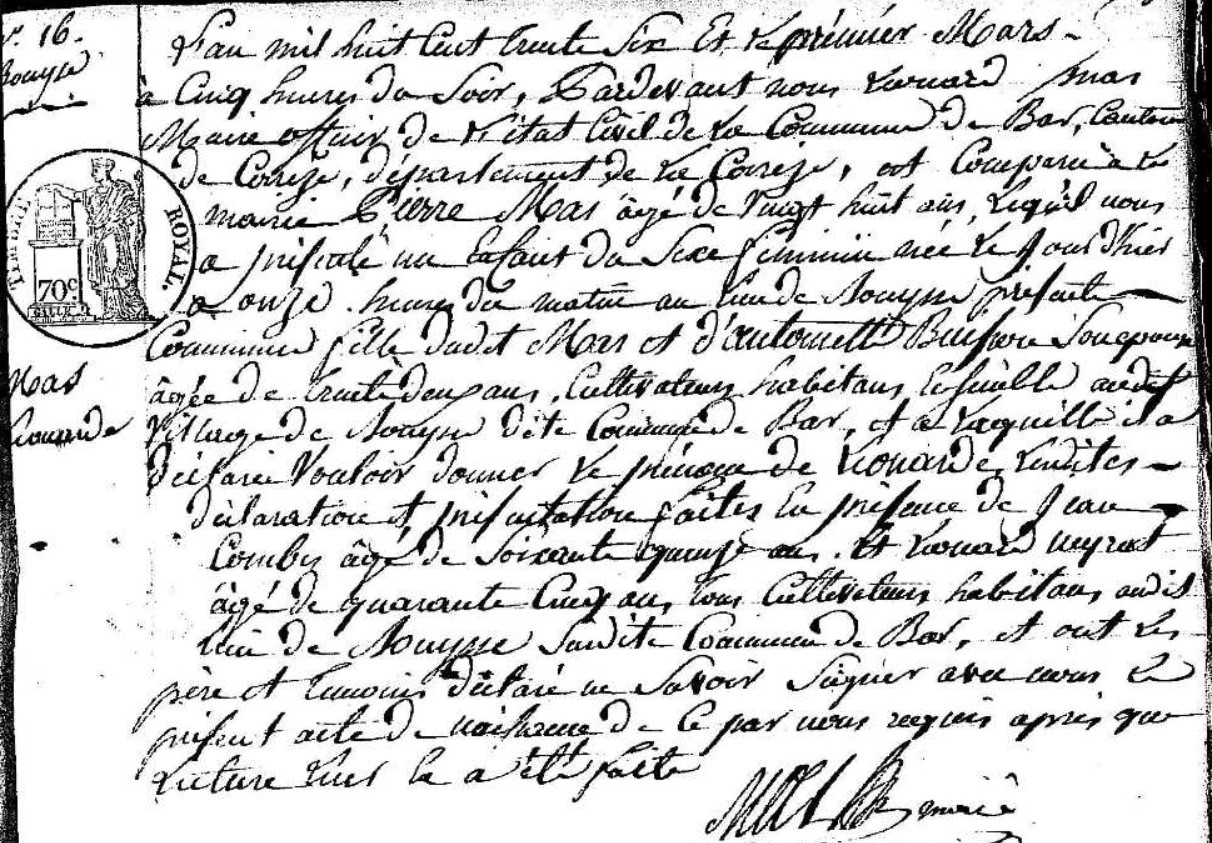 N°. 16.
Bouysse
L'an mil huit Cent trente Six Et le prémiér Mars
à Cinq heures du Soir, Pardevant nous Léonard mas
Maire officier De L'état Civil de La Commune De Bar, Canton
De Corrèze, département de La Corrèze, est Comparu à La
mairie Pierre Mas âgé de Vingt huit ans, Lequel nous
a présenté un Enfant du Sexe féminin née Le Jour d'hier
a onze heures du matin au lieu de Bouysse présente
Commune fille dudit Mas et d'antoinette Buissou Son epouse
âgée de trente deux ans, Cultivateurs habitans Ensemble audit
Village de Bouysse dite Commune de Bar, et a Laquelle il a
déclaré Vouloir donner Le prénom de Léonarde, Lesdites
déclaration et présentation faites En présence de Jean
Combes âgé de Soixante quinze ans. Et Léonard neyrat
âgé de quarante Cinq ans, tous Cultivateurs habitans audit
lieu de Bouysse Susdite Commune de Bar, et ont Les
père et temoins déclaré ne Savoir Signer avec nous Le
présent acte de naissance De Ce par nous requis après que
Lecture Leur En a été faite
TIMBRE ROYAL.
70c
Mas
Léonarde
Mas maire